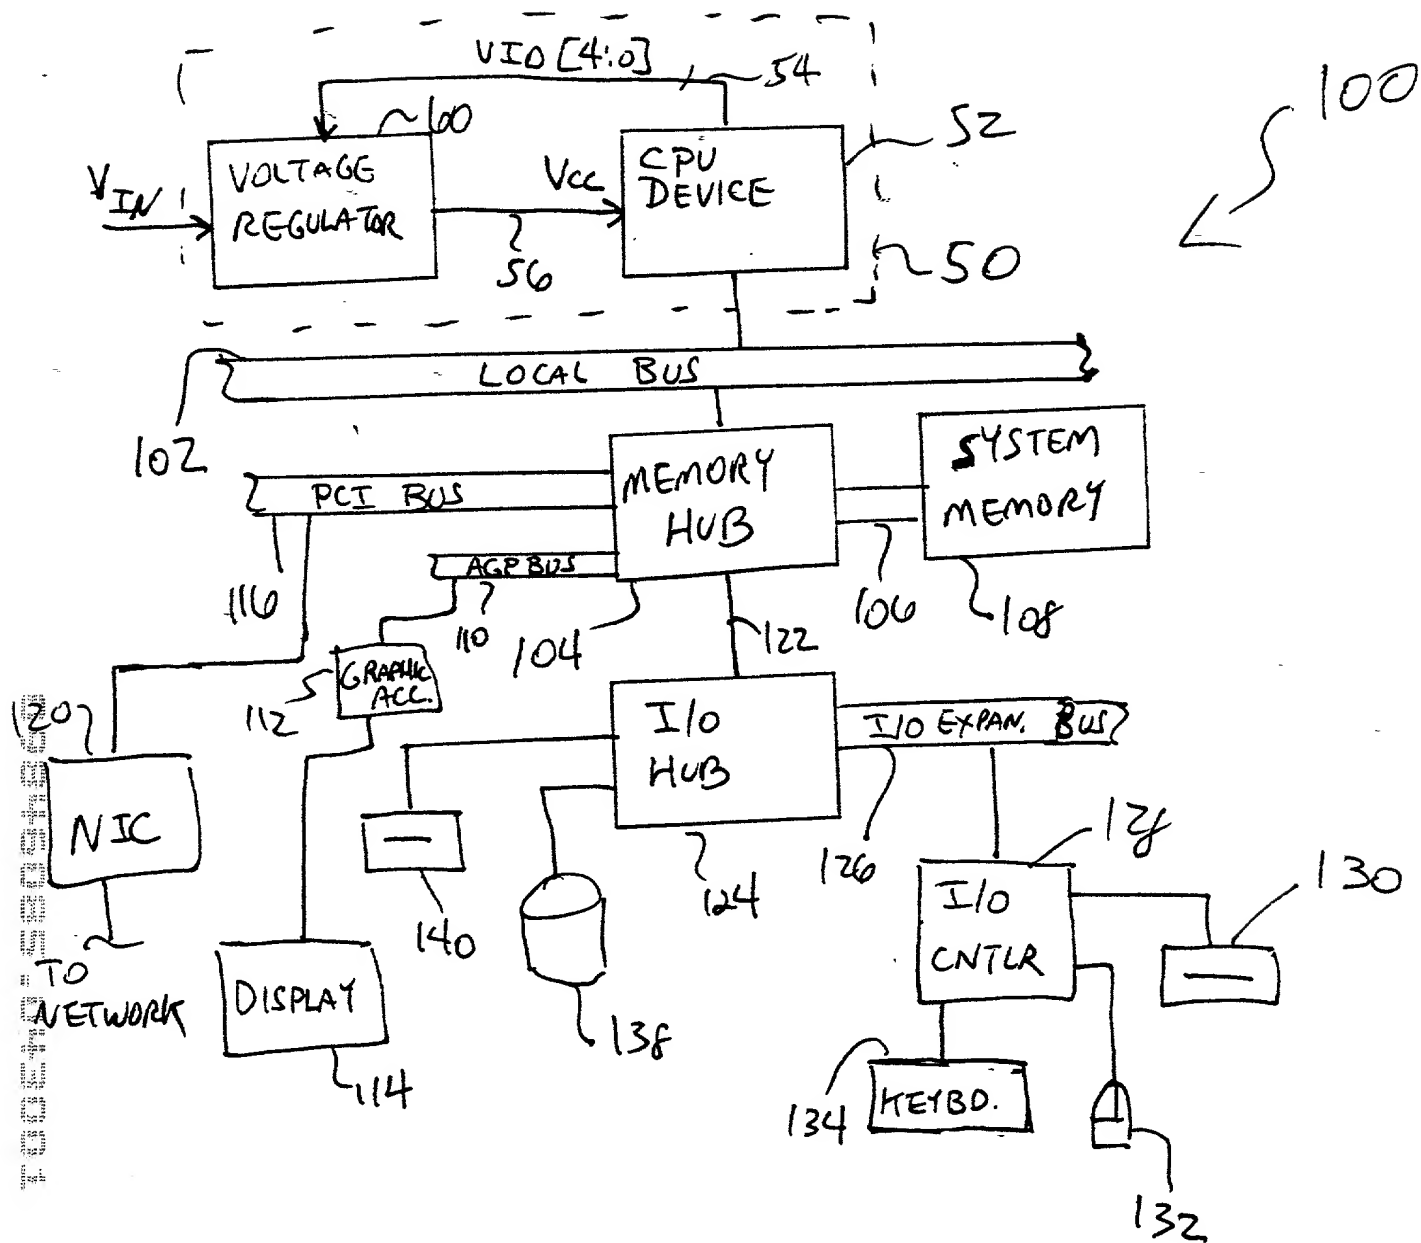 VID [4:0]
54
100
60
52
VOLTAGE
REGULATOR
VIN
Vcc
CPU
DEVICE
56
50
LOCAL BUS
102
PCI BUS
MEMORY
HUB
SYSTEM
MEMORY
AGP BUS
116
110
104
122
106
108
GRAPHIC
ACC.
112
120
I/O
HUB
I/O EXPAN. BUS
NIC
126
128
124
130
140
I/O
CNTLR
TO
NETWORK
DISPLAY
138
114
134
KEYBD.
132